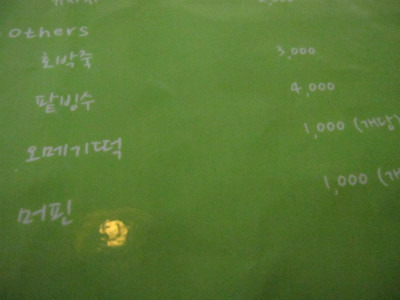 Others
호박죽 3,000
팥빙수 4,000
오메기떡 1,000 (개당)
머핀 1,000 (개